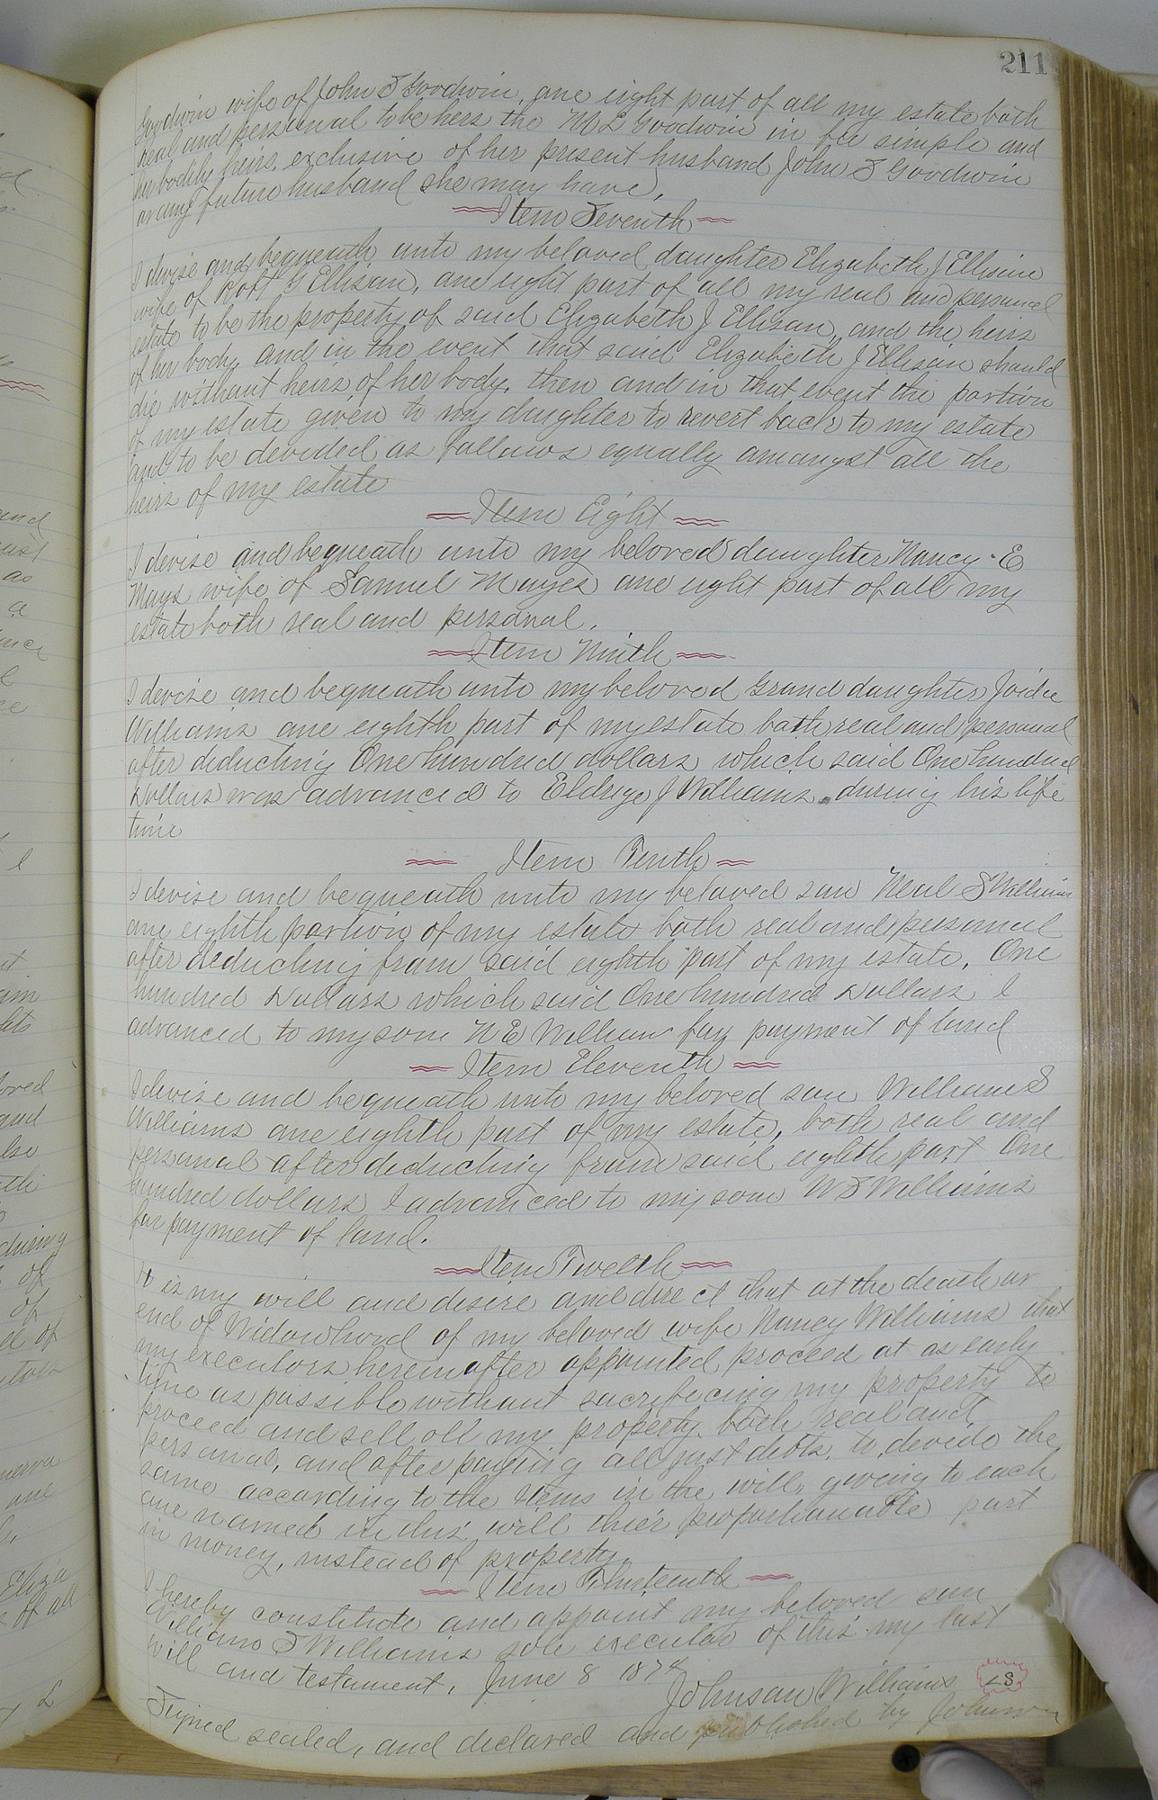 211
Goodwin wife of John T Goodwin, one eight part of all my estate both
real and personal to be hers the M L Goodwin in fee simple and
her bodily heirs, exclusive of her present husband John T Goodwin
or any future husband she may have,
Item Seventh
I devise and bequeath unto my beloved daughter Elizabeth J Ellison
wife of Robt G Ellison, one eight part of all my real and personal
estate to be the property of said Elizabeth J Ellison, and the heirs
of her body, and in the event that said Elizabeth J Ellison should
die without heirs of her body, then and in that event the portion
of my estate given to my daughter to revert back to my estate
and to be devided as follows equally amongst all the
heirs of my estate
Item Eight
I devise and bequeath unto my beloved daughter Nancy E
Mays wife of Samuel Mayes one eight part of all my
estate both real and personal.
Item Ninth
I devise and bequeath unto my beloved Grand daughter
Williams one eighth part of my estate both real and personal
after deducting One hundred dollars which said One hundred
Dollars was advanced to Eldrige J Williams during his life
time
Item Tenth
I devise and bequeath unto my beloved son Neal S Williams
one eighth portion of my estate both real and personal
after deducting from said eighth part of my estate, One
hundred Dollars which said One hundred Dollars I
advanced to my son N E William for payment of land
Item Eleventh
I devise and bequeath unto my beloved son William S
Williams one eighth part of my estate, both real and
personal after deducting from said eighth part One
hundred dollars I advanced to my son W S Williams
for payment of land.
Item Twelth
It is my will and desire and direct that at the death or
end of Widowhood of my beloved wife Nancy Williams that
my executors hereinafter appointed proceed at as early
time as possible without sacrificing my property to
proceed and sell all my property both real and
personal, and after paying all just debts, to devide the
same according to the Items in the will, giving to each
one named in this will thier proportionable part
in money, instead of property,
Item Thirteenth
I hereby constitute and appoint my beloved son
William S Williams sole executor of this my last
will and testament, June 8 1874
Johnson Williams LS
Signed sealed, and declared and published by Johnson